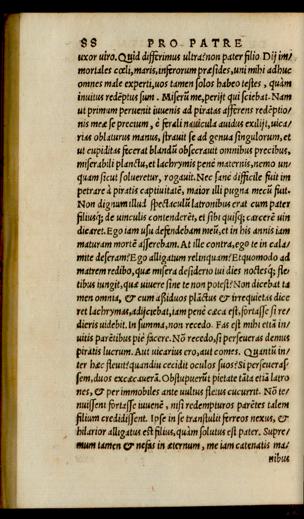 88 PRO PATRE
uxor uiro. Quid differimus ultra? non pater filio. Dij im/
mortales cœli, maris, inferorum præsides, uni mihi adhuc
omnes male experti, uos tamen solos habeo testes, quàm
inuitus redēptus sum. Miserū me, perijt qui sciebat. Nam
ut primum peruenit iuuenis ad piratas afferens redēptio/
nis meæ se precium, è ferali nauicula auidus exiliſt, uica/
rias oblaturus manus, strauit se ad genua singulorum, et
ut cupiditas fecerat blandū obsecrauit omnibus precibus,
miserabili planctu, et lachrymis penè maternis, nemo un/
quam sicut solueretur, rogauit. Nec sanè difficile fuit im
petrare à piratis captiuitatē, maior illi pugna mecū fuit.
Non dignum illud spectaculū latronibus erat cum pater
filiusq́; de uinculis contenderēt, et sibi quisq; carcerē uin
dicaret. Ego iam usu defendebam meū, et in his annis iam
maturam mortē asserebam. At ille contra, ego te in cala/
mite deseram? Ego alligatum relinquam? Et quomodo ad
matrem redibo, quæ misera desiderio tui dies noctesq́; fle/
tibus iungit, quæ uiuere sine te non potest? Non dicebat ta
men omnia, & cum aßiduos plāctus & irrequietas dice
ret lachrymas, adijciebat, iam penè cæca est, fortasse si re/
dieris uidebit. In summa, non recedo. Fas est mihi etiā in/
uitis parētibus piè facere. Nō recedo, si perseueras demus
piratis lucrum. Aut uicarius ero, aut comes. Quantū in/
ter hæc fleuit? quandiu cecidit oculos suos? Si perseueraſ/
sem, duos excæcauerā. Obstupuerūt pietate tāta etiā latro
nes, & per immobiles ante uultus fletus cucurrit. Nō te/
nuissent fortasse iuuenē, nisi redempturos parētes talem
filium credidissent. Ipse in se transtulit ferreos nexus, &
hilarior alligatus est filius, quàm solutus est pater. Supre/
mum tamen & nefas in æternum, me iam catenatis ma/
nibus